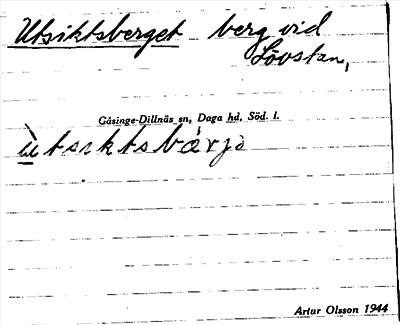 Utsiktsberget berg vid
Lövstan,
Gåsinge-Dillnäs sn, Daga hd, Söd. l.
ùtsıktsbárjə
Artur Olsson 1944